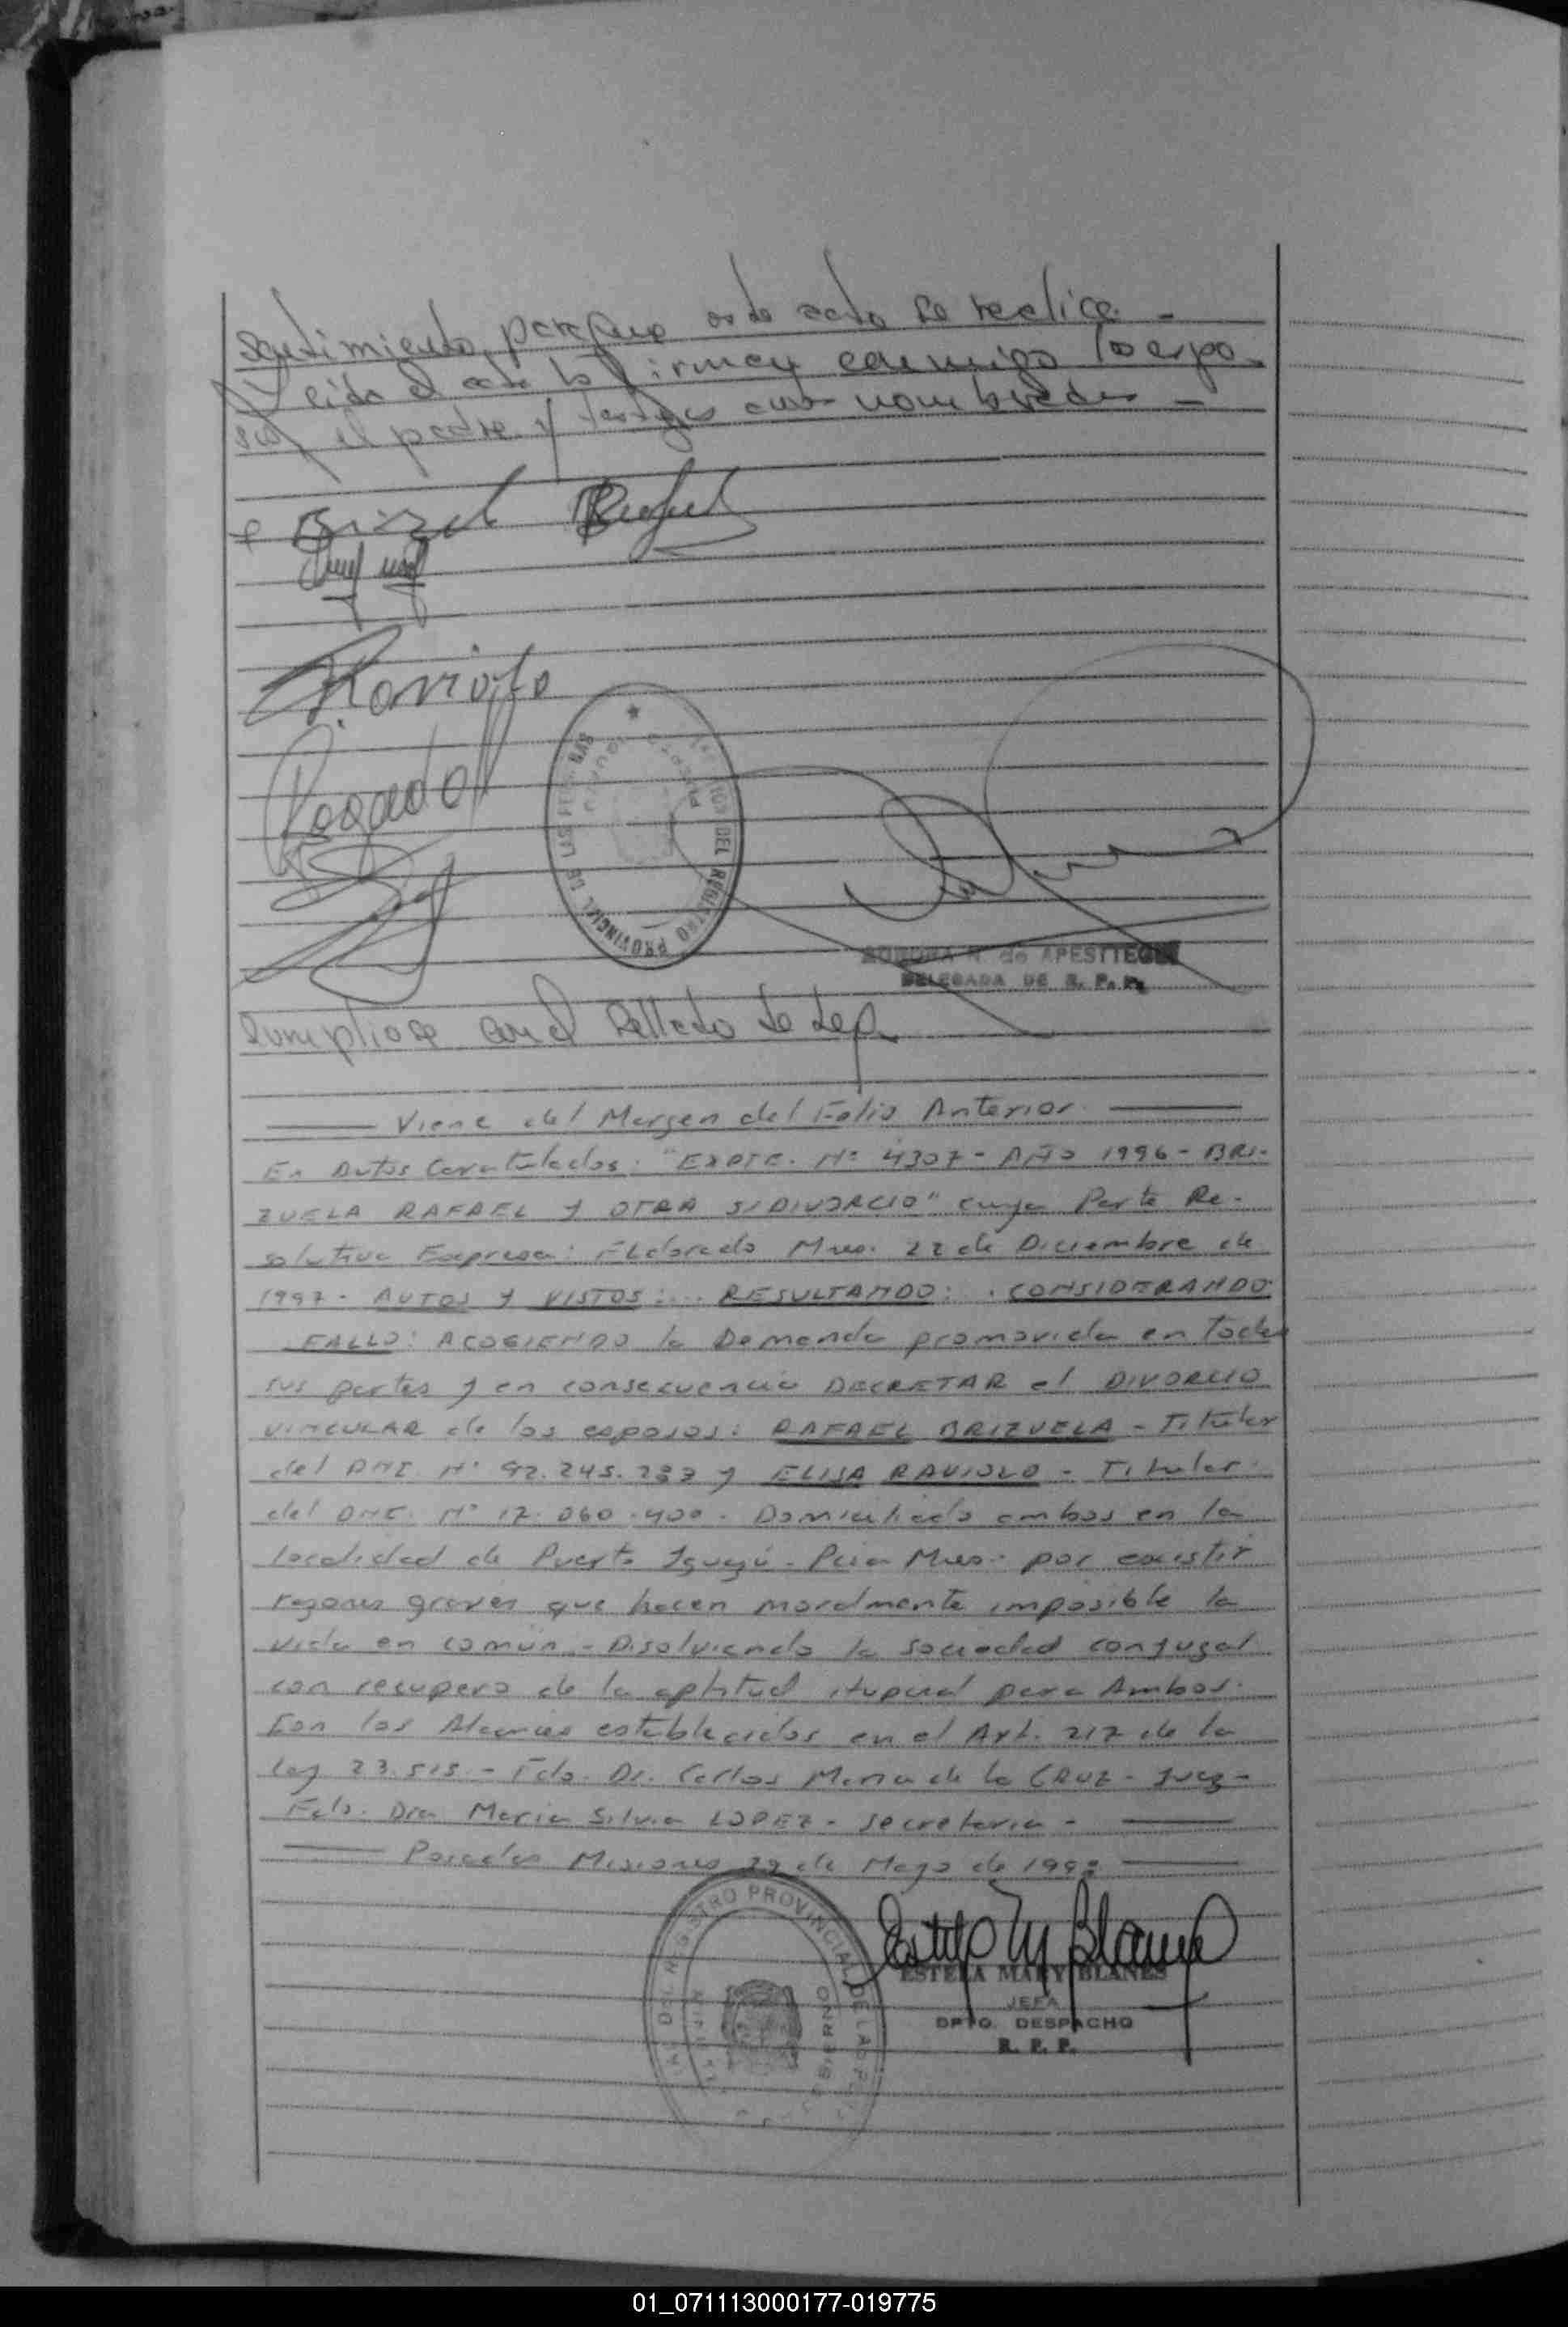 sentimiento, para que este acto se realice -
Leída el acta la firman conmigo los espo-
sos, el padre y testigos nombrados -
Raviolo
SECCION DEL REGISTRO PROVINCIAL DE LAS PERSONAS
N. de APESTTEGUI
DELEGADA DE R. P. P.
Cumpliose con el sellado de Ley.
Viene del Margen del Folio Anterior.
En Autos Caratulados: "EXPTE. Nº 4307 - AÑO 1996 - BRI-
ZUELA RAFAEL Y OTRA S/DIVORCIO" cuya Parte Re-
solutiva Expresa: Eldorado Mnes. 22 de Diciembre de
1997 - AUTOS Y VISTOS: .. RESULTANDO: . CONSIDERANDO
FALLO: ACOGIENDO la Demanda promovida en todas
sus partes y en consecuencia DECRETAR el DIVORCIO
VINCULAR de los esposos: RAFAEL BRIZUELA - Titular
del DNI. Nº 92.245. y ELISA RAVIOLO - Titular
del DNI. Nº 17.060.400 - Domiciliado ambos en la
localidad de Puerto Iguazú - Pcia Mnes. por existir
razones graves que hacen moralmente imposible la
vida en común - Disolviendo la sociedad conyugal
con recupero de la aptitud nupcial para Ambos.
Con los Alcances establecidos en el Art. 217 de la
Ley 23.515 - Fdo. Dr. Carlos Maria de la CRUZ - Juez -
Fdo. Dra Maria Silvia LOPEZ - Secretaria -
Posadas Misiones 29 de Mayo de 1998
REGISTRO PROVINCIAL DE LAS
ESTELA MARY BLANES
JEFA
DPTO. DESPACHO
R. P. P.
01_071113000177-019775